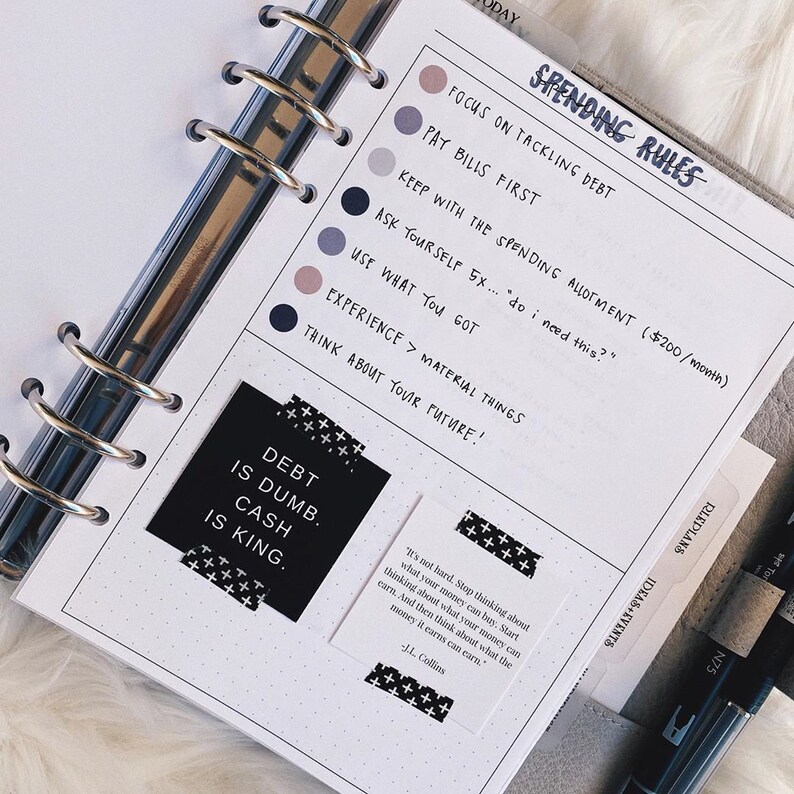 TODAY
SPENDING RULES
FOCUS ON TACKLING DEBT
PAY BILLS FIRST
KEEP WITH THE SPENDING ALLOTMENT ($200/month)
ASK YOURSELF 5X... "do i need this?"
USE WHAT YOU GOT
EXPERIENCE > MATERIAL THINGS
THINK ABOUT YOUR FUTURE!
DEBT
IS DUMB.
CASH
IS KING.
"It's not hard. Stop thinking about
what your money can buy. Start
thinking about what your money can
earn. And then think about what the
money it earns can earn."
-J.L. Collins
IDEAS+EVENTS
N75